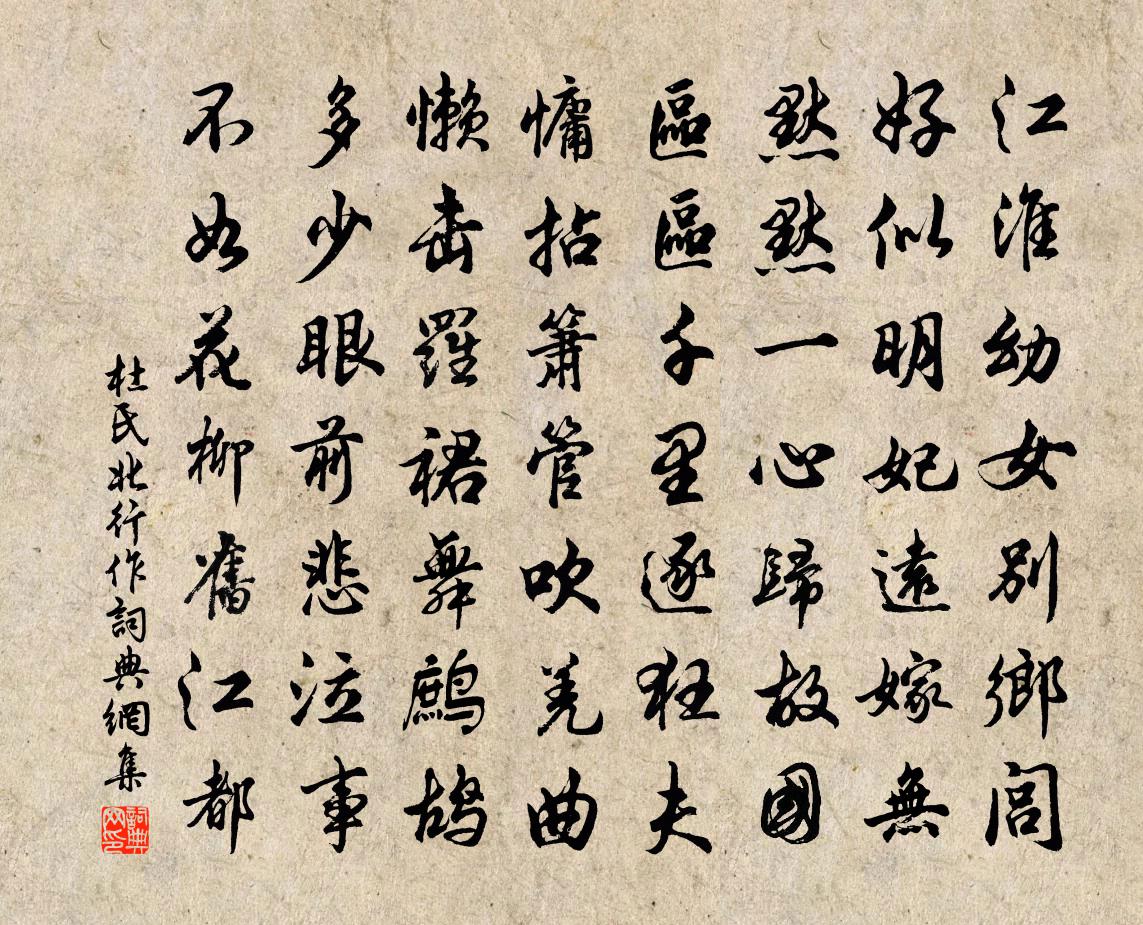 江淮幼女別鄉閭
好似明妃遠嫁無
默默一心歸故國
區區千里逐狂夫
慵拈簫管吹羌曲
懶击羅裙舞鷓鴣
多少眼前悲泣事
不如花柳舊江都
杜氏北行作詞典網集
詞典网印